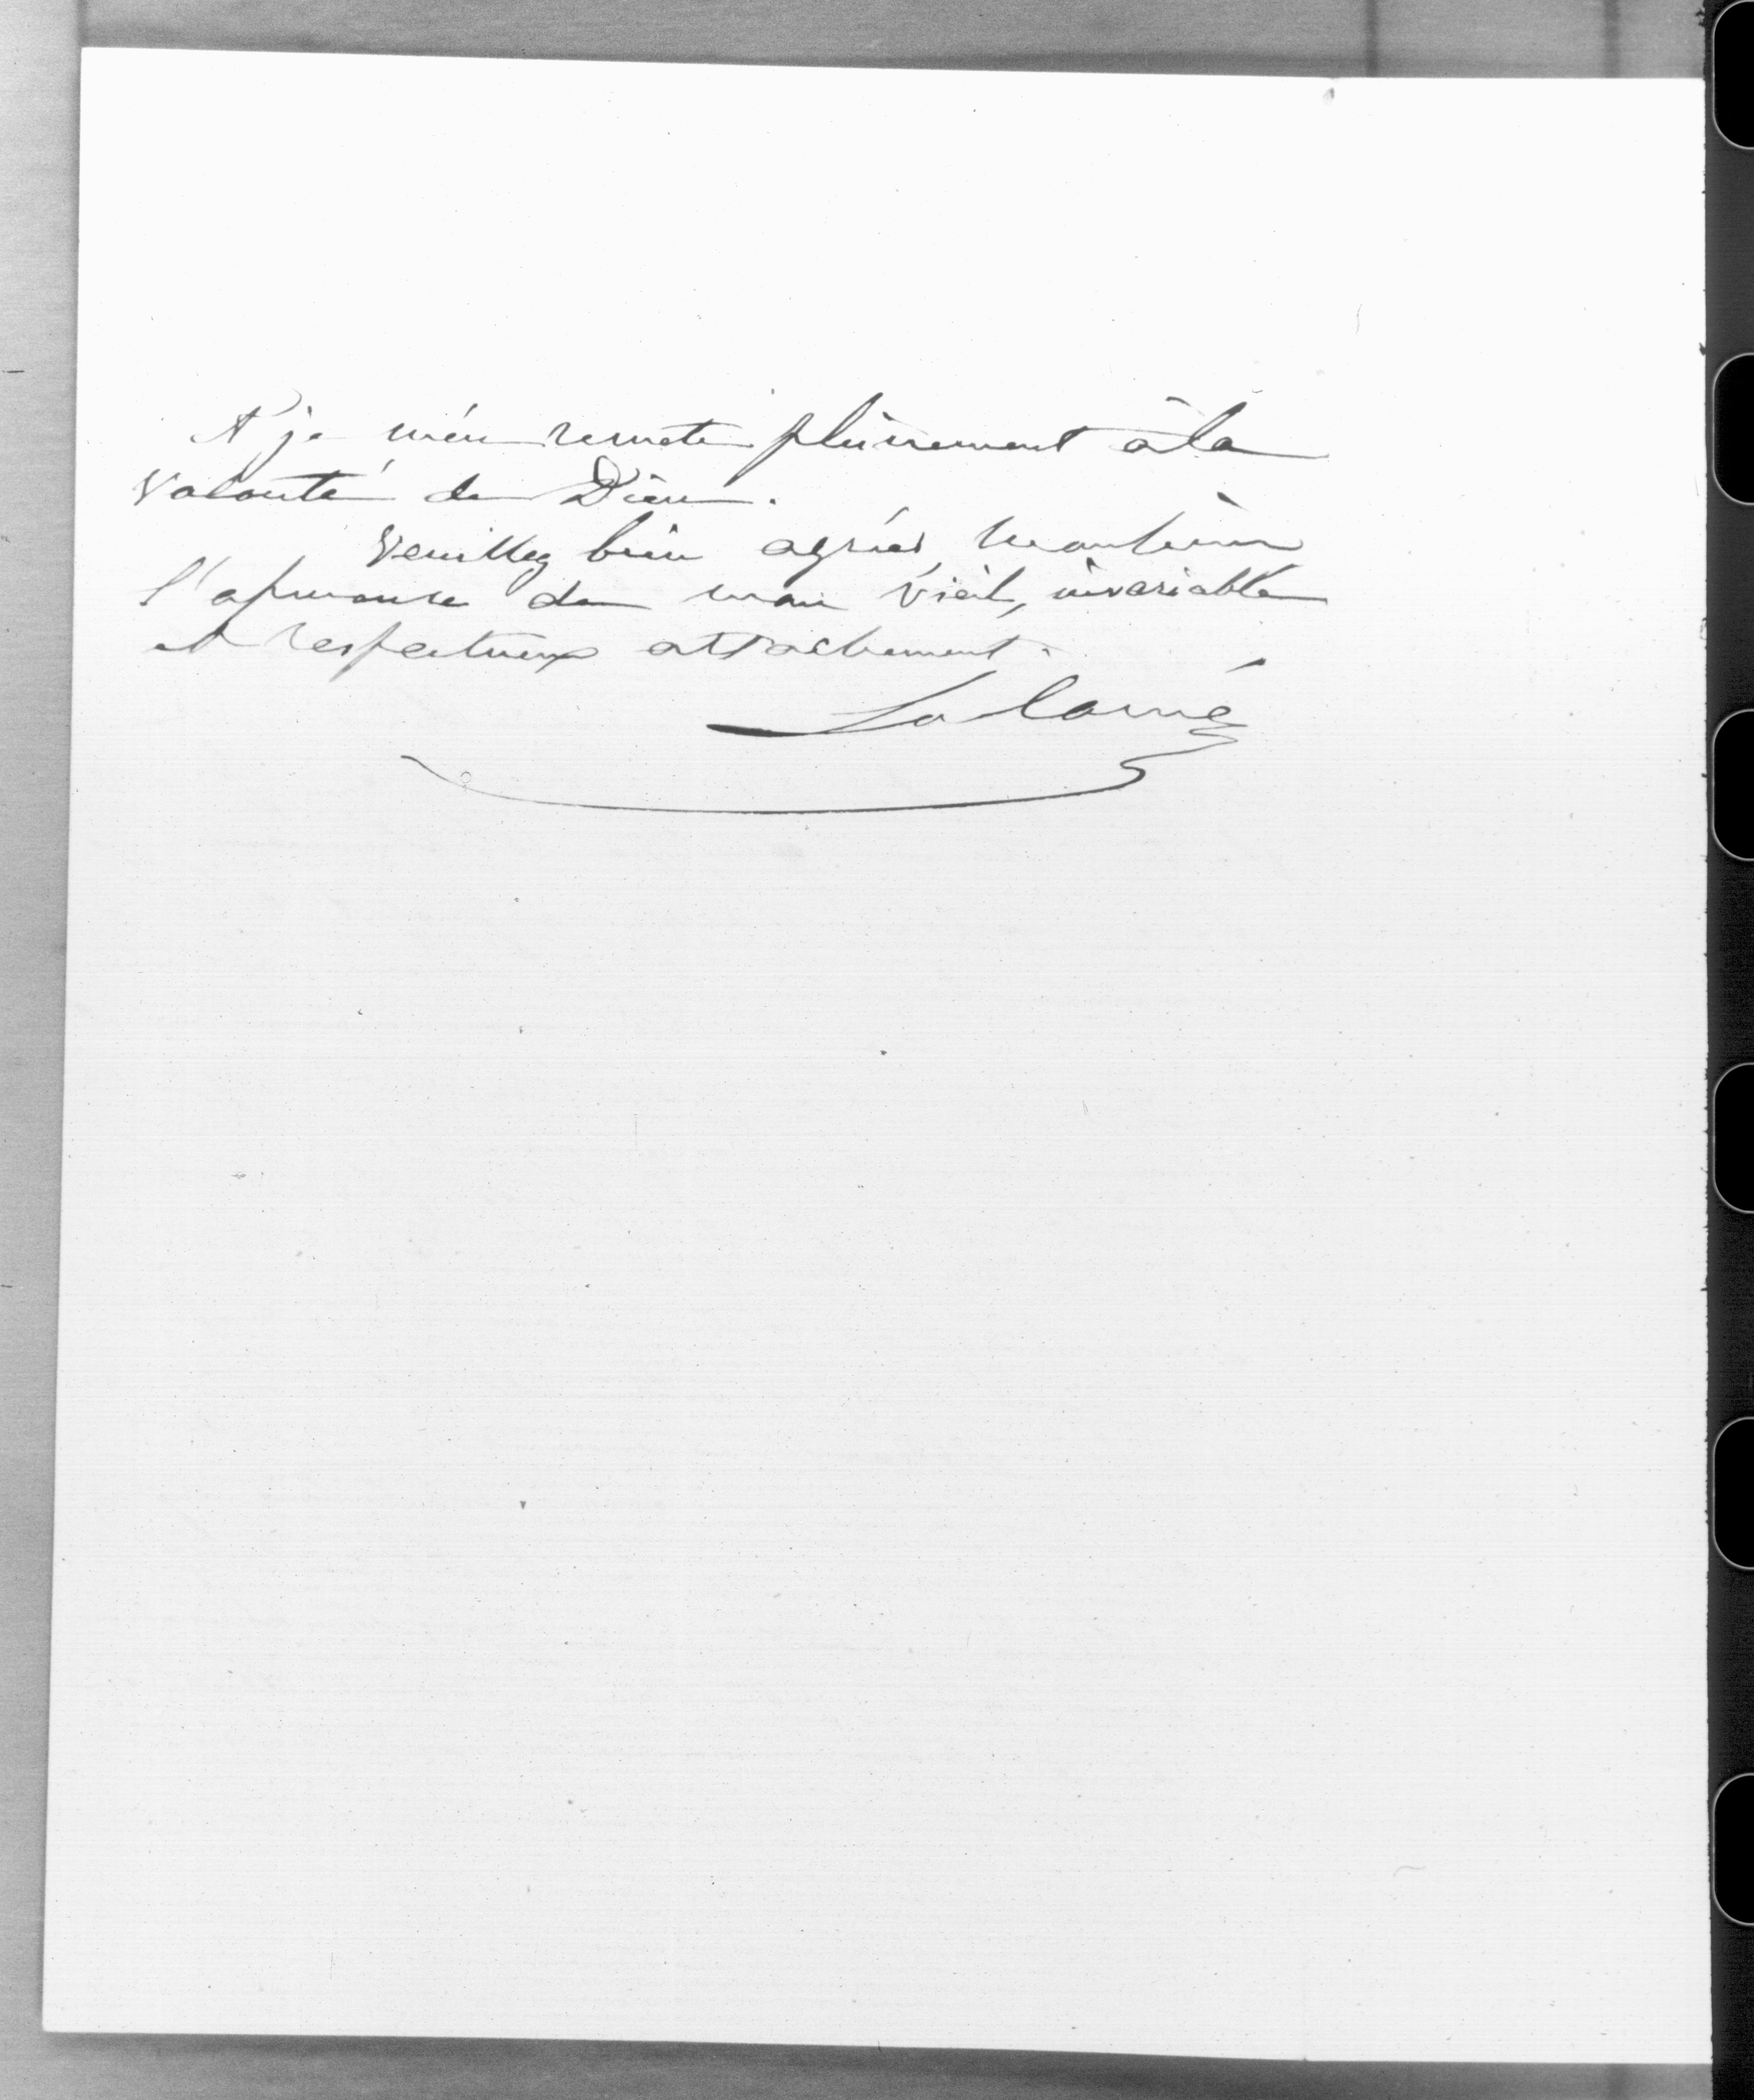 et je m'en remets pleinement à la
volonté de Dieu.
Veuillez bien agréer, Monsieur
l'expression de mon vieil, invariable
et respectueux attachement.